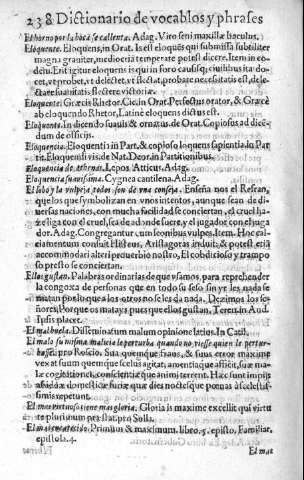 238 Dictionario de vocablos y phrases
El horno por la boca se callenta. Adag. Viro seni maxillæ baculus.
Eloquente. Eloquens, in Orat. Is est eloquēs qui submissa subtiliter
magna grauiter, mediocria temperate potest dicere. Item in eo-
dē. Erit igitur eloquens is qui in foro causisq; ciuilibus ita do-
cet, vt probet, vt delectet, vt flectat, probare necessitatis est, dele-
ctare suauitatis, flectere victoriæ.
Eloquente. Græcis Rhetor. Cic. in Orat. Perfectus orator, & Græcè
ab eloquendo Rhetor, Latinè eloquens dictus est.
Eloquente. In dicendo suauis & ornatus de Orat. Copiosus ad dicē-
dum de officijs.
Eloquencia. Eloquentia in Part. & copiose loquens sapientia. In Par
tit. Eloquentiæ vis. de Nat. Deor. in Partitionibus.
Eloquencia de Athenas. Lepos Atticus. Adag.
Eloquencia suauissima. Cygnea cantilena. Adag.
El lobo y la vulpeja todos son de vna conseja. Enseña nos el Refran,
que los que symbolizan en vnos intentos, aunque sean de di-
uersas naciones, con mucha facilidad se conciertan, el cruel ha-
ze liga con el cruel, sea de donde fuere, y el jugador con el juga
dor. Adag. Congregantur cum leonibus vulpes. Item. Hoc cal-
ciamentum consuit Histieus, Aristagoras induit, & potest etiā
accommodari alteri prouerbio nostro, El cobdicioso y trampo
so presto se conciertan.
Ellos gustan. Palabras ordinarias de que vsamos, para reprehender
la congoxa de personas que en todo su seso sin yr les nada se
matan por lo que a los otros no se les da nada. Dezimos los se-
ñores, Porque os matays pues que ellos gustan. Teren. in And.
Ipsis placet.
El mal suela. Disseminatum malum opinione latius. In Catil.
El malo su misma malicia le perturba quando no viesse quien le pertur-
basse. pro Roscio. Sua quemque fraus, & suus error maxime
vexat suum quemque scelus agitat, amentiaque afficit, suæ ma-
læ cogitationes, conscientiæque animi terrent. Hæc sunt impijs
assiduæ domesticæ furiæ quæ dies noctesque pœnas à scelestif-
simis repetunt.
El mas virtuoso tiene mas gloria. Gloria is maxime excellit qui virtu
te plurimum præstat. pro Sylla.
Primum & maximum. libro. 5. episto. Familiar.
epistola. 4.
El mas